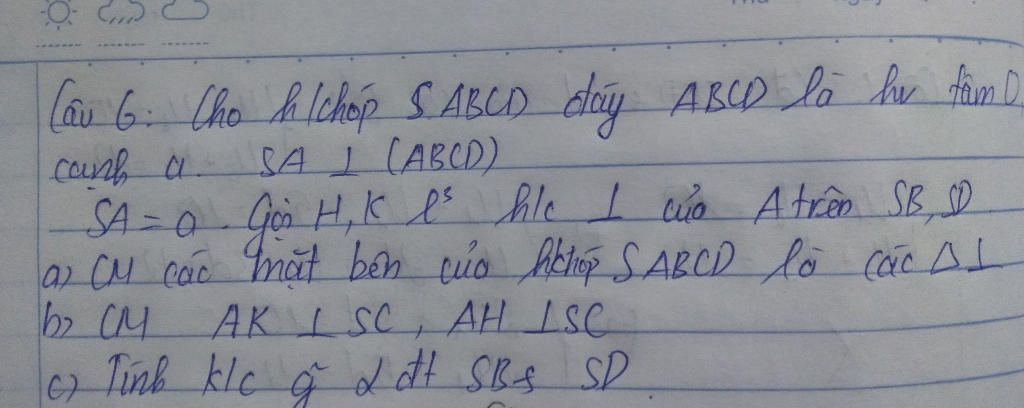 Câu 6: Cho h/chóp SABCD đáy ABCD là hv tâm O
cạnh a. SA ⊥ (ABCD)
SA = a. Gọi H, K l² h/c ⊥ của A trên SB, SD
a) CM các mặt bên của h/chóp SABCD là các Δ ⊥
b) CM AK ⊥ SC, AH ⊥ SC
c) Tính k/c g 2 đt SB & SD